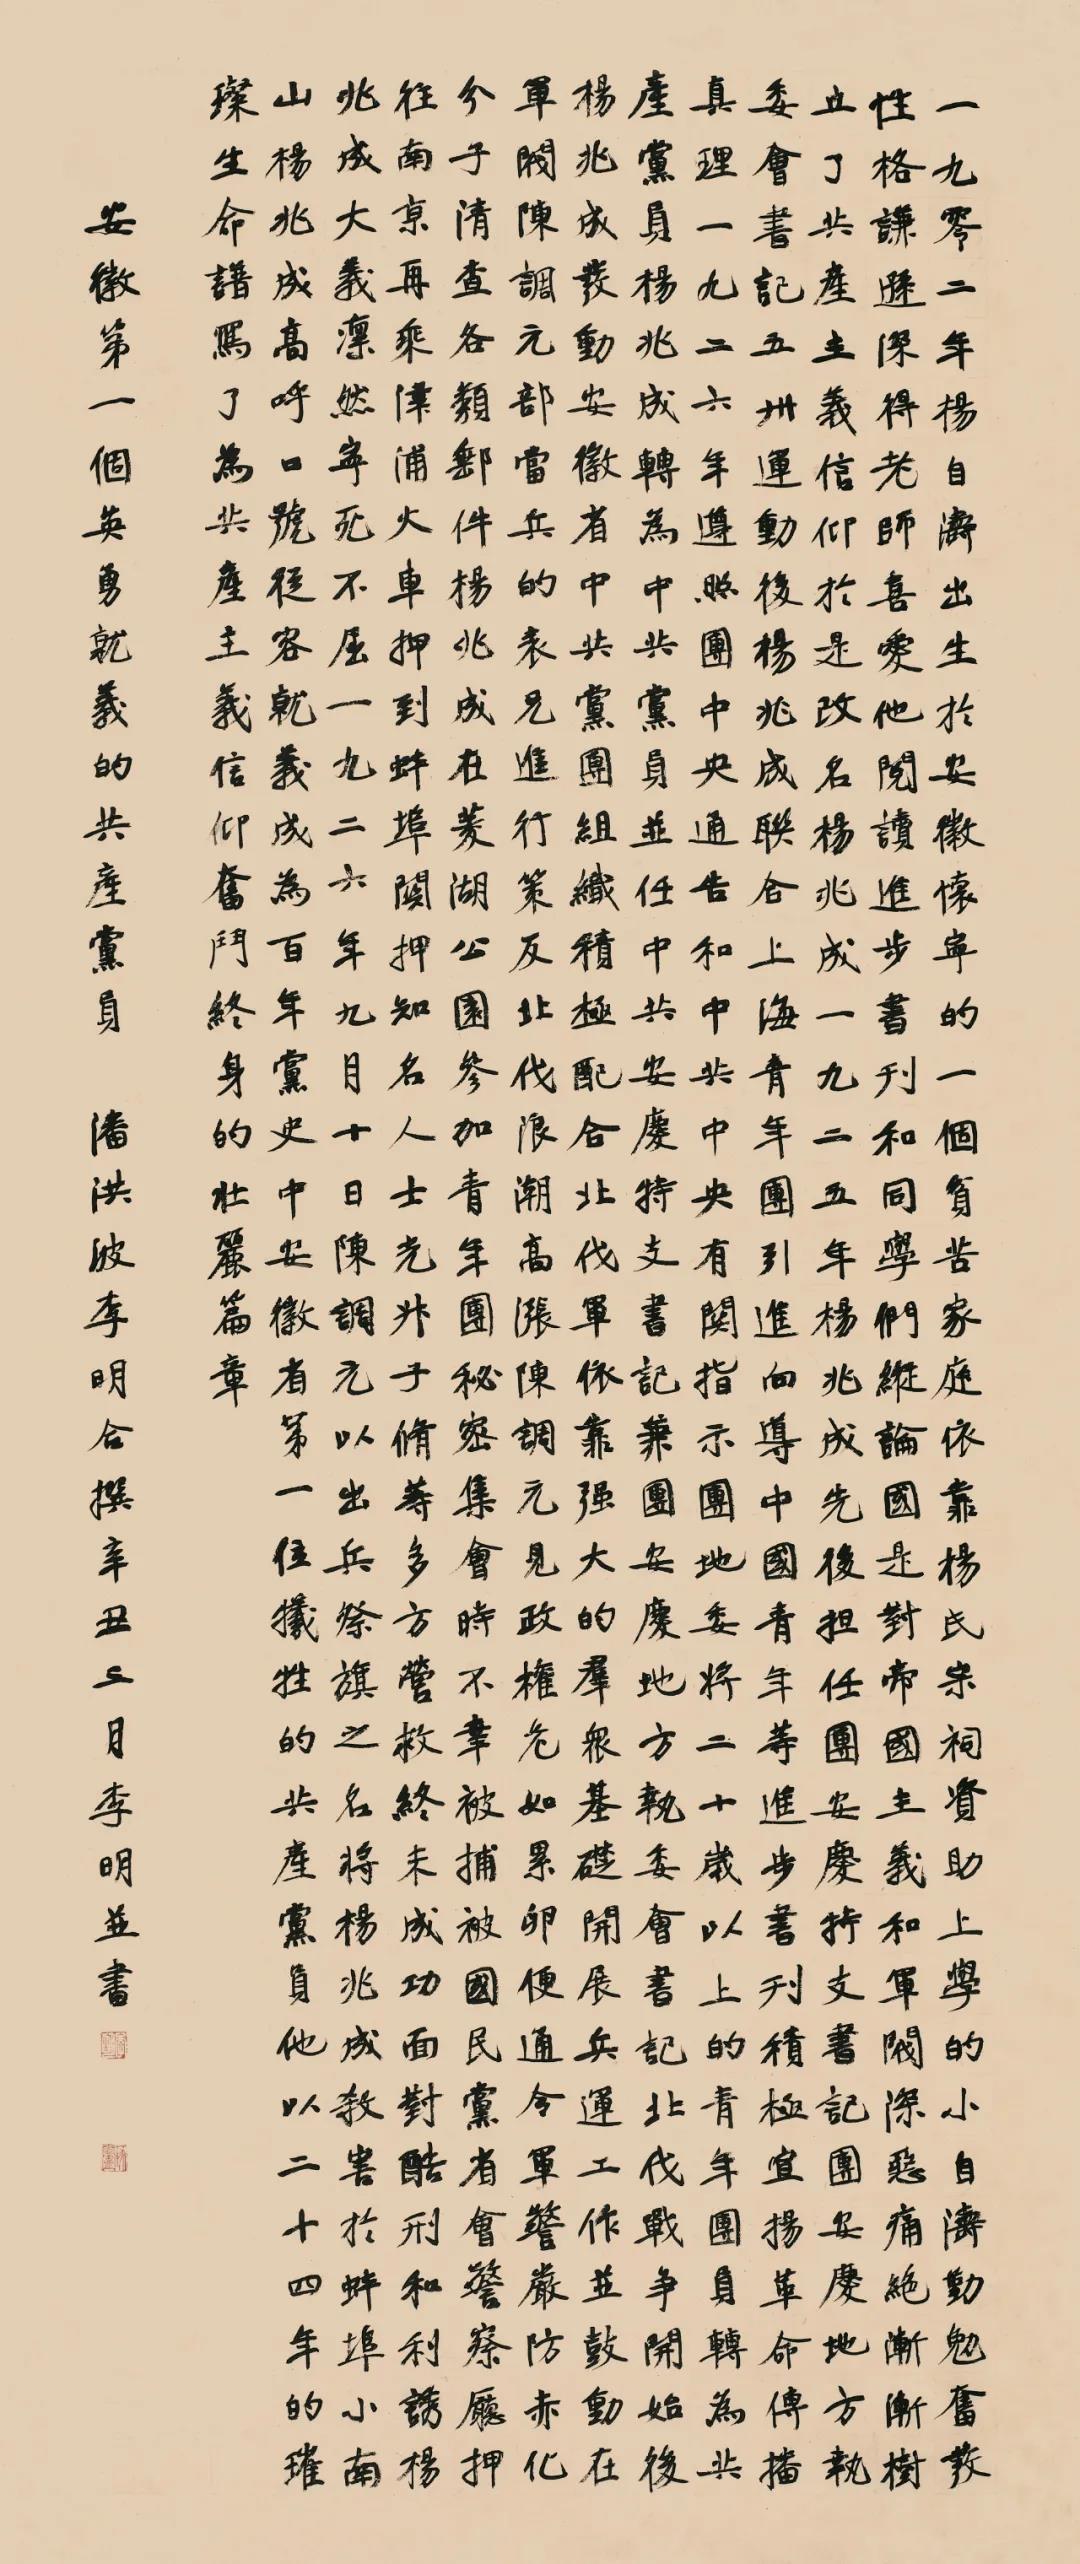 一九零二年楊自濤出生於安徽懷寧的一個貧苦家庭依靠楊氏宗祠資助上學的小自濤勤勉奮發
性格謙遜深得老師喜愛他閱讀進步書刊和同學們縱論國是對帝國主義和軍閥深惡痛絕漸漸樹
立了共產主義信仰於是改名楊兆成一九二五年楊兆成先後担任團安慶特支書記團安慶地方執
委會書記五卅運動後楊兆成聯合上海青年團引進向導中國青年等進步書刊積極宣揚革命傳播
真理一九二六年遵照團中央通告和中共中央有関指示團地委将二十歲以上的青年團員轉為共
產黨員楊兆成轉為中共黨員並任中共安慶特支書記兼團安慶地方執委會書記北伐戰争開始後
楊兆成發動安徽省中共黨團組織積極配合北伐軍依靠强大的羣衆基礎開展兵運工作並鼓動在
軍閥陳調元部當兵的表兄進行策反北伐浪潮高漲陳調元見政權危如累卵便通令軍警嚴防赤化
分子清查各類郵件楊兆成在菱湖公園參加青年團秘密集會時不幸被捕被國民黨省會警察廳押
往南京再乘津浦火車押到蚌埠関押知名人士光昇子脩等多方營救終未成功面對酷刑和利誘楊
兆成大義凛然寧死不屈一九二六年九月十日陳調元以出兵祭旗之名将楊兆成殺害於蚌埠小南
山楊兆成高呼口號從容就義成為百年黨史中安徽省第一位犠牲的共產黨員他以二十四年的璀
璨生命譜寫了為共產主義信仰奮鬥終身的壮麗篇章
安徽第一個英勇就義的共產黨員 潘洪波李明合撰辛丑七月李明並書